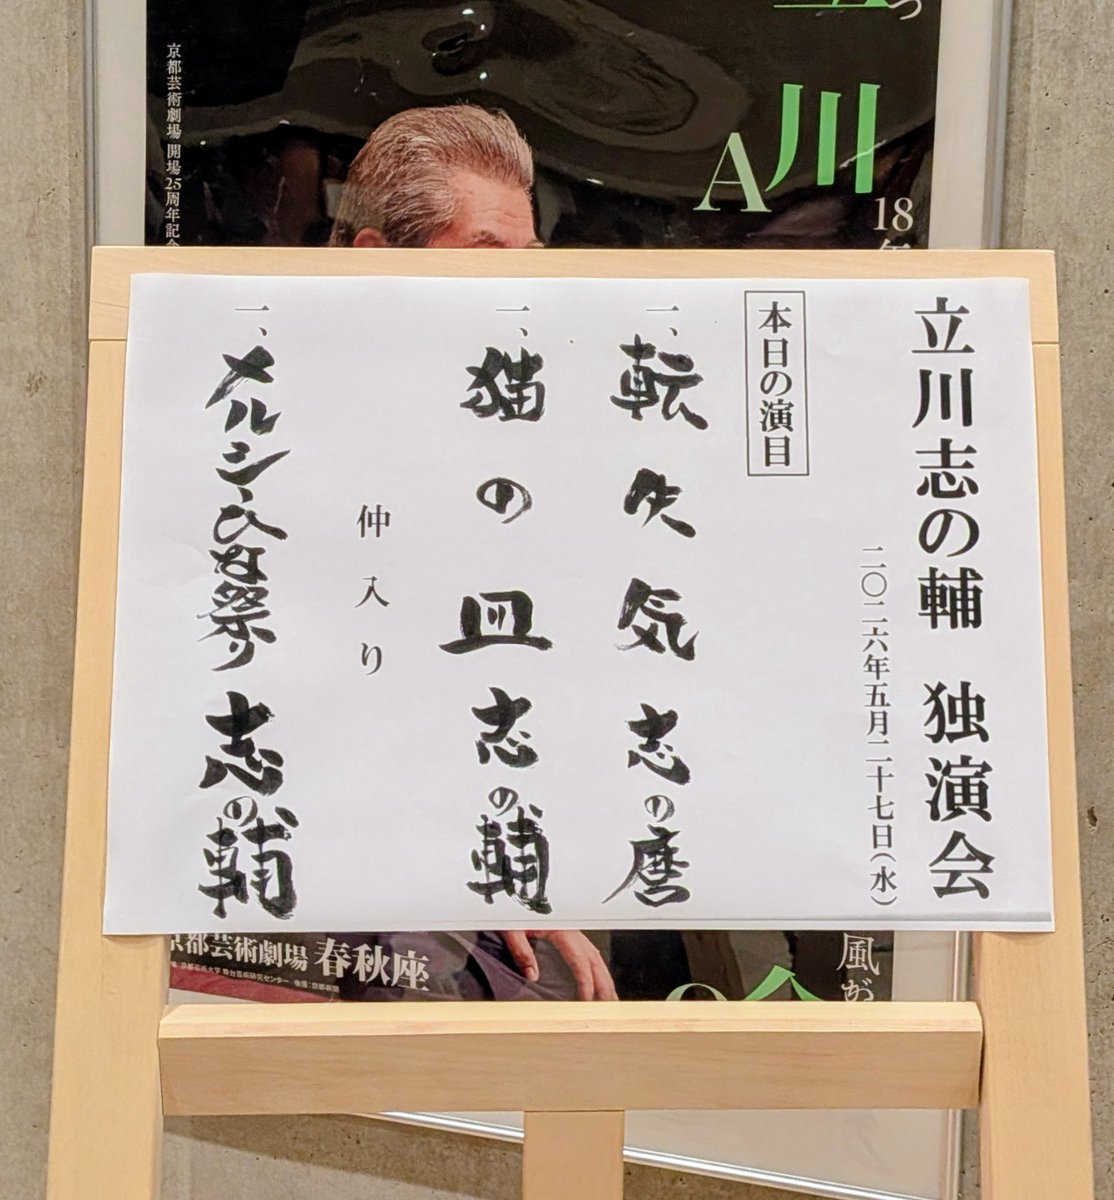 立川志の輔 独演会
二〇二六年五月二十七日(水)
本日の演目
一、転失気 志の麿
一、猫の皿 志の輔
仲入り
一、メルシーひな祭り 志の輔
川
A
18年
京都芸術劇場 開場25周年記念
京都芸術劇場 春秋座
風ぢ